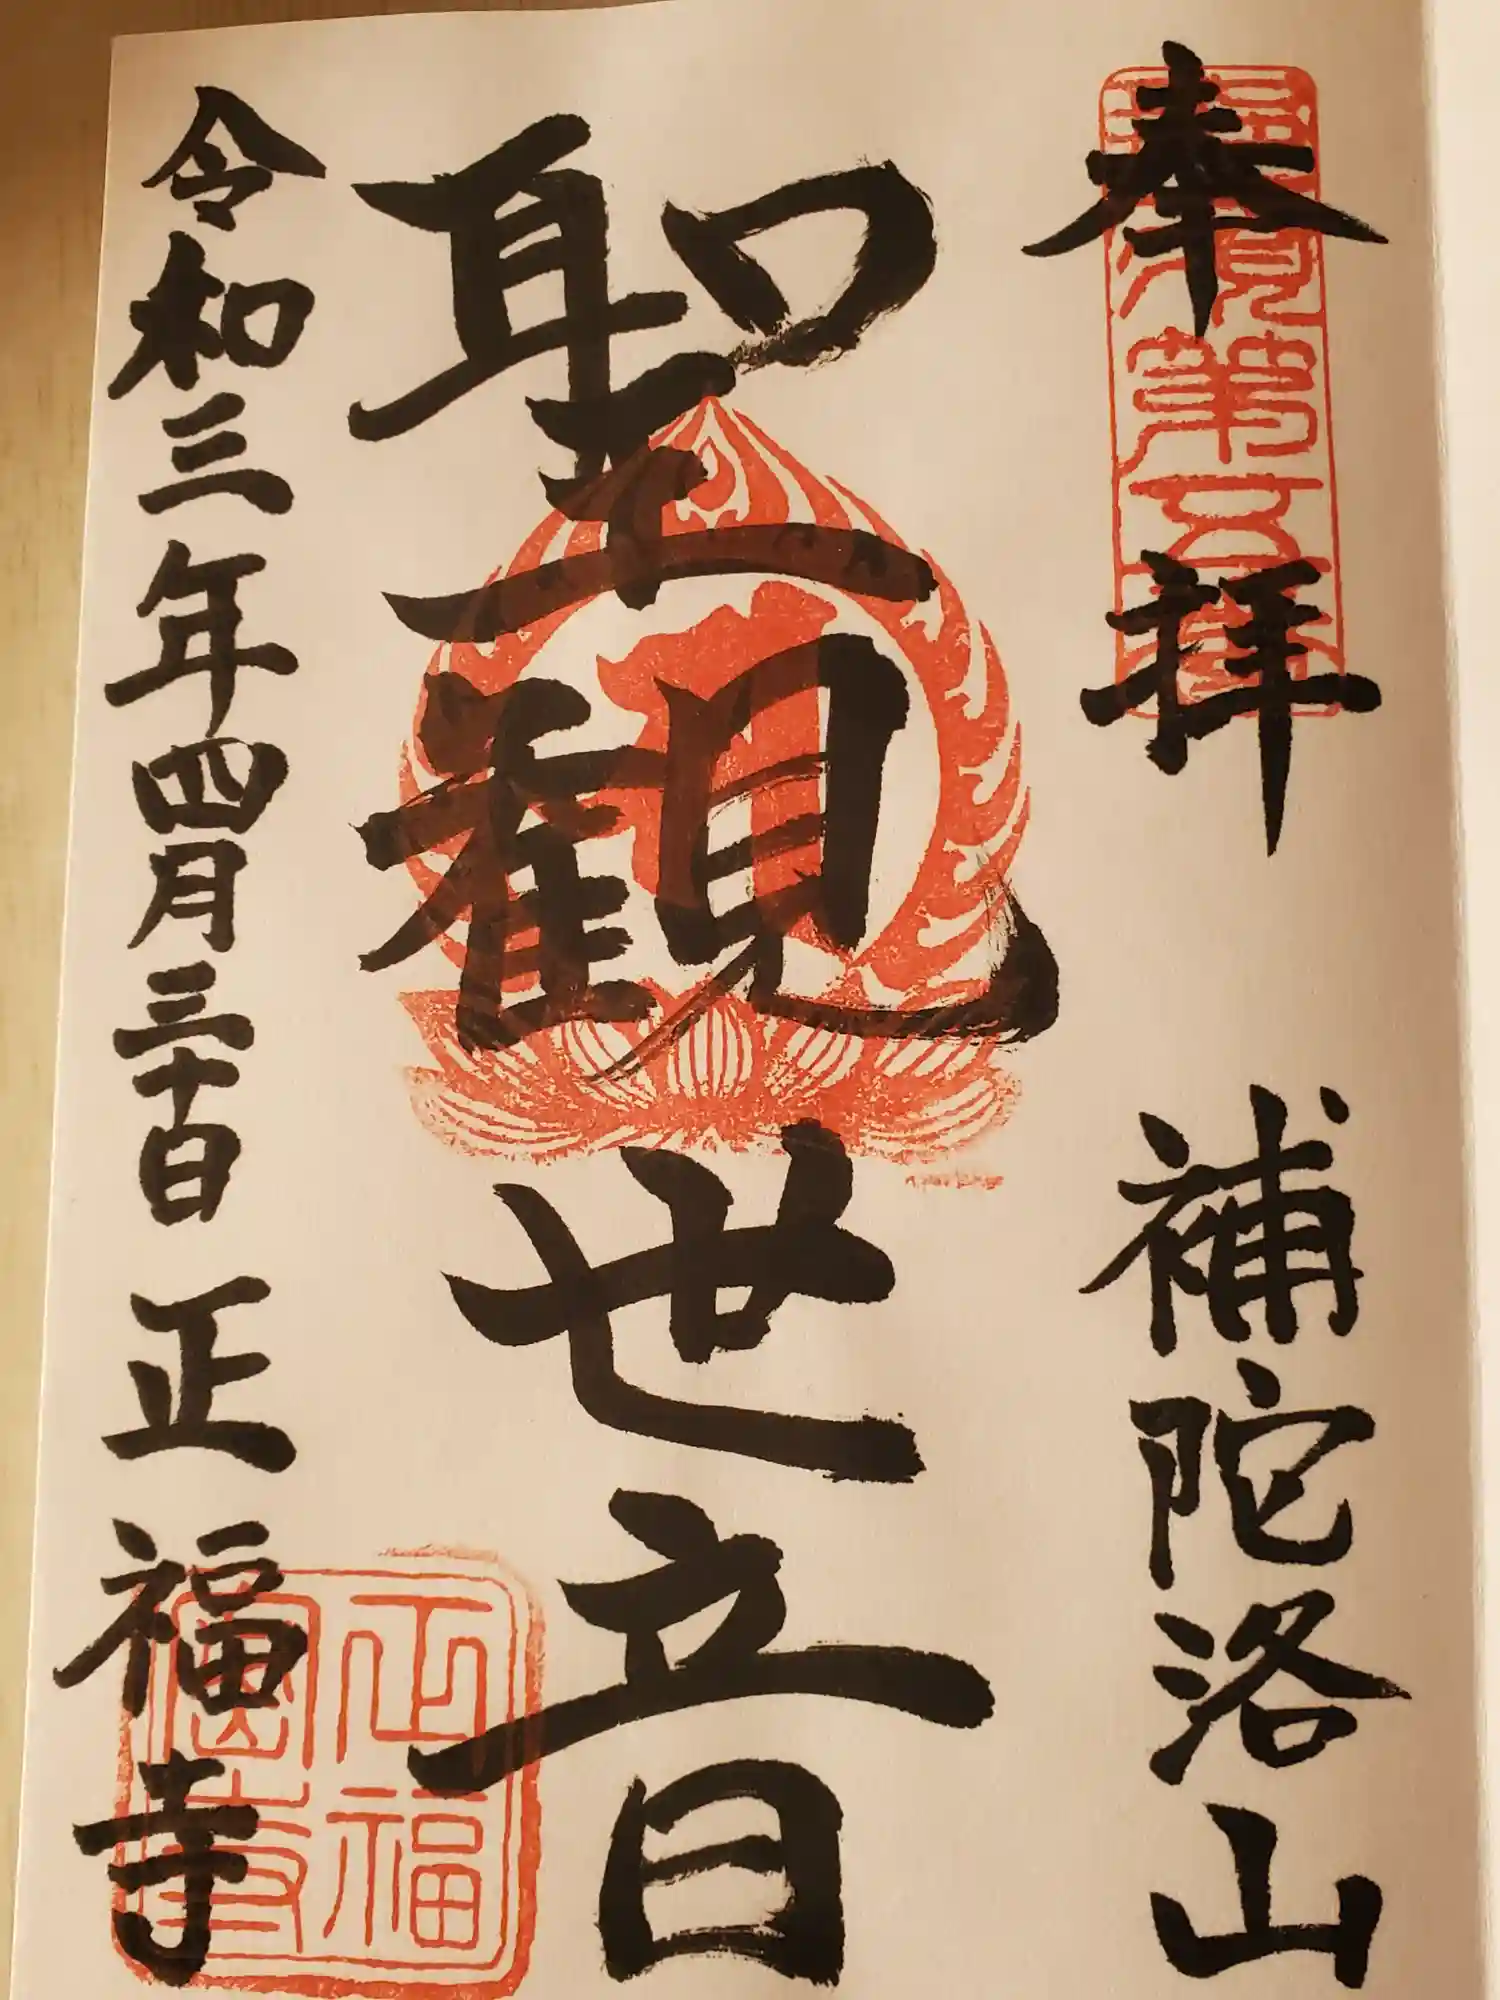 奉拝 補陀洛山
聖観世音
令和三年四月三十日 正福寺